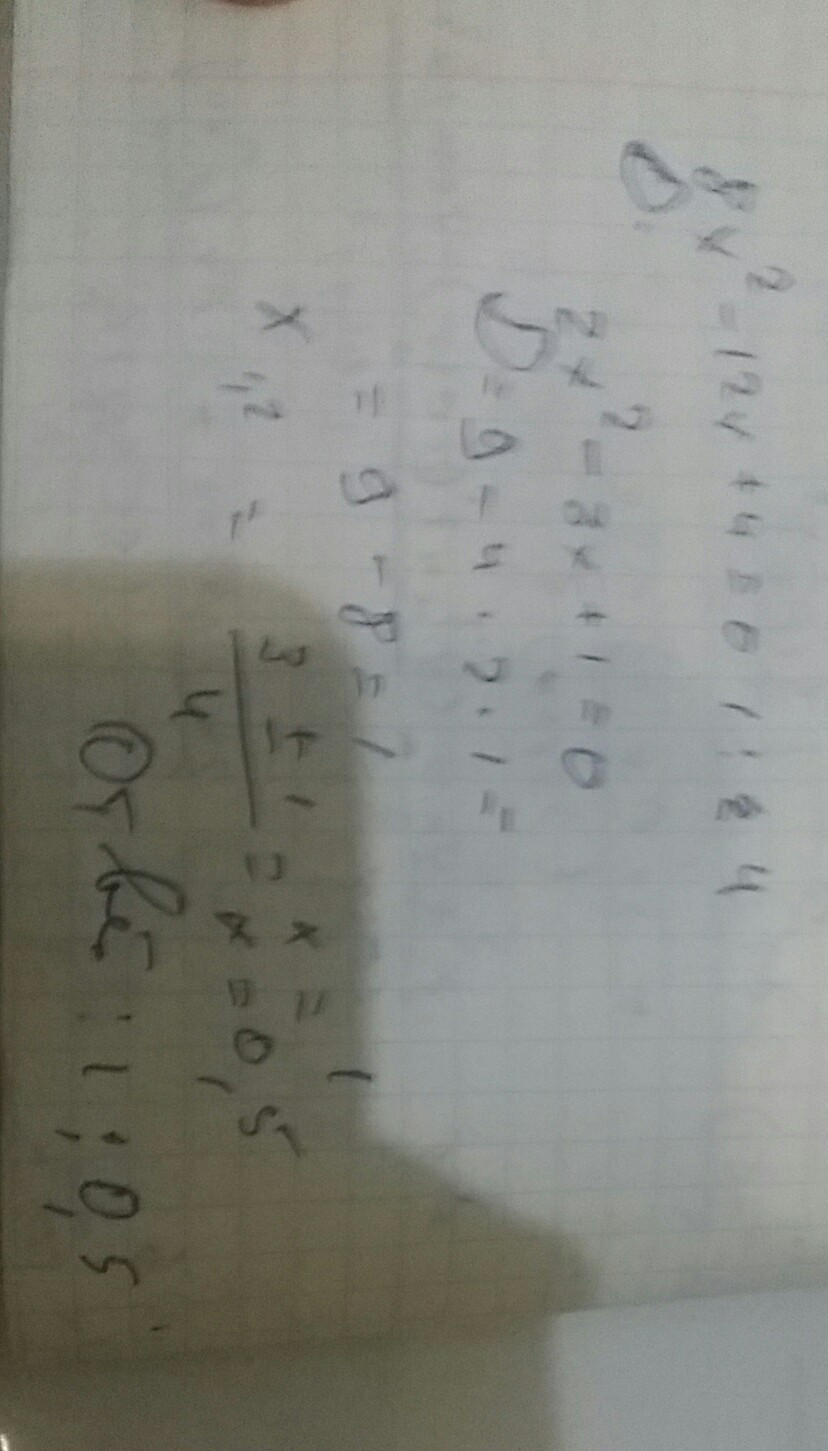 8x² - 12x + 4 = 0 | : 4
D
2x² - 3x + 1 = 0
D = 9 - 4 · 2 · 1 =
= 9 - 8 = 1
x₁,₂ = (3 ± 1) / 4 = x = 1
x = 0,5
Ответ: 1; 0,5